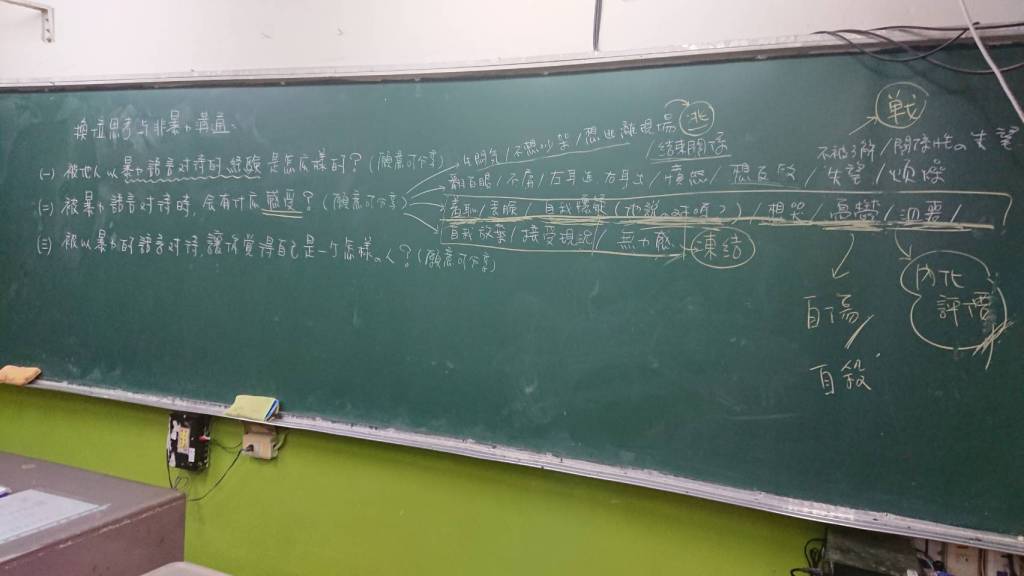 換位思考与非暴力溝通：
(一) 被他人以暴力語言對待的經驗是怎麼樣的？(願意可分享)
(二) 被暴力語言對待時，會有什麼感受？(願意可分享)
(三) 被以暴力的語言對待，讓你覺得自己是一个怎樣的人？(願意可分享)
生悶氣/不想吵架/想逃離現場 逃
/結束關係
戦
不被了解/關係性の失望
翻白眼/不屑/左耳進右耳出/憤怒/想自殺/失望/煩燥
羞恥/丟臉/自我懷疑(他說的對嗎？)/想哭/高營/沮喪/
自我放棄/接受現況/無力感 凍結
自傷/
自殺
內化
評價